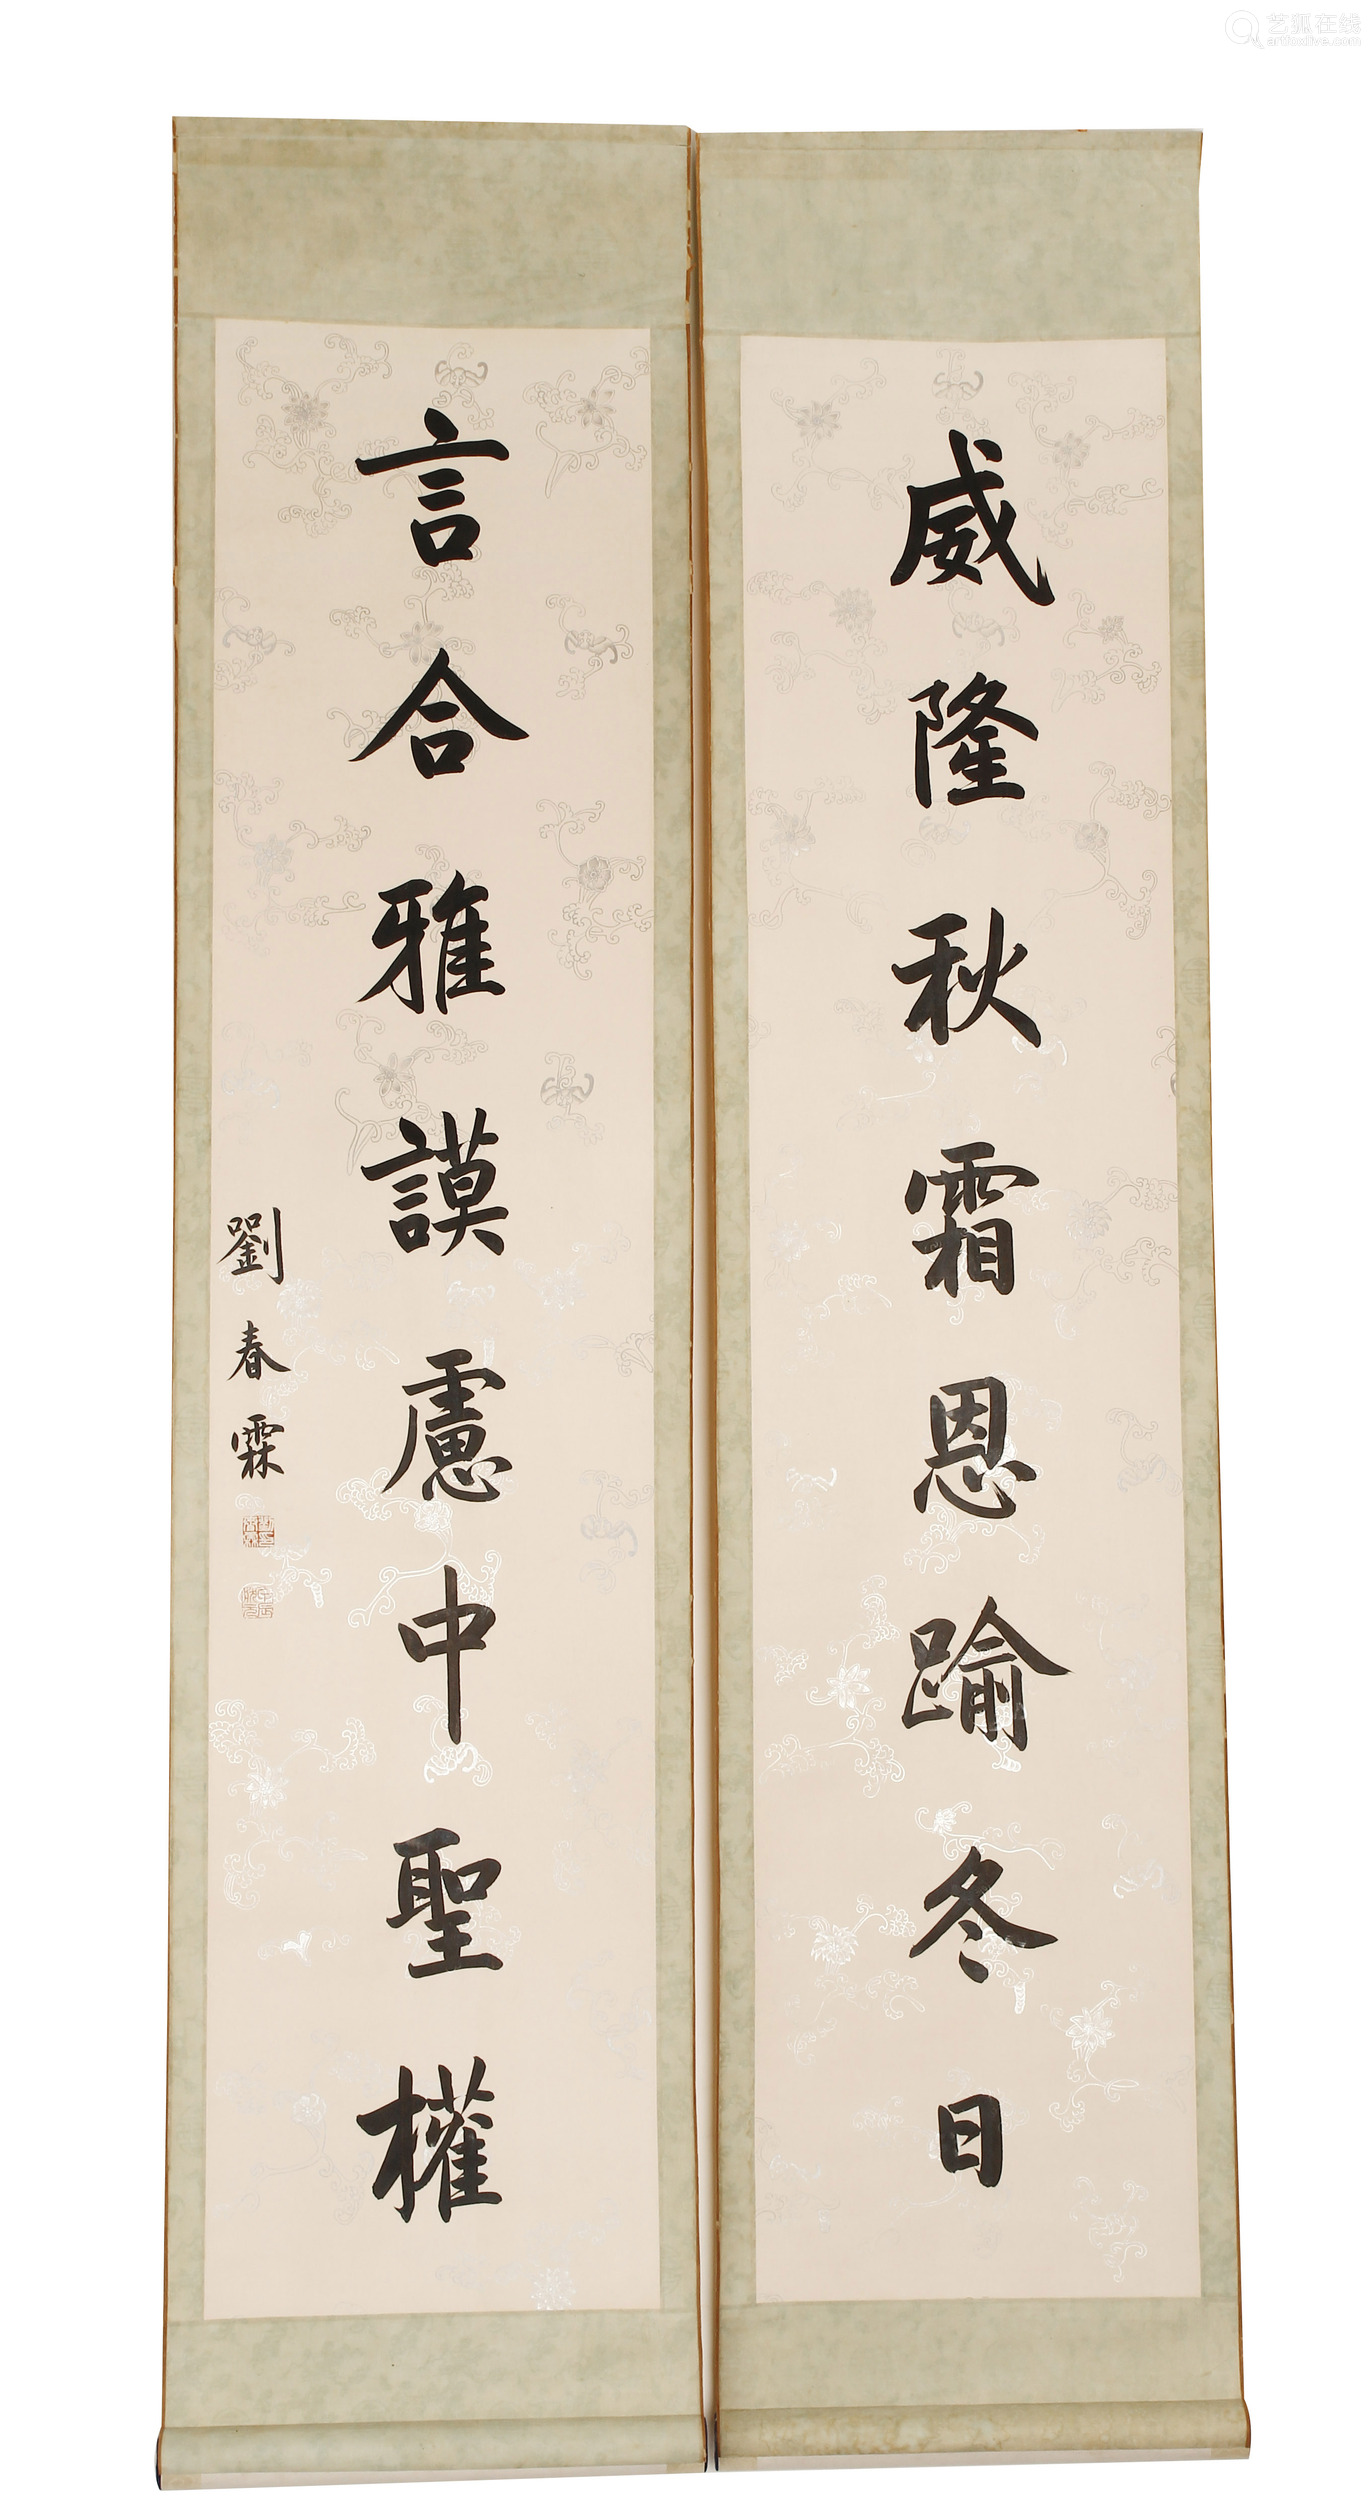 威隆秋霜恩踰冬日
言合雅謨慮中聖權
劉春霖
艺狐在线
artfoxlive.com